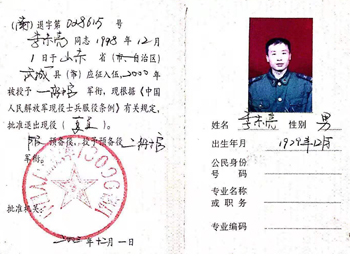 退字第028615号
同志1998年12月
1日于山东省（市、自治区）
武城县（市）应征入伍，2000年
被授予一级士官军衔，现根据《中国
人民解放军现役士兵服役条例》有关规定，
批准退出现役（复员）
服预备役，授予预备役一级士官
军衔。
批准机关
年十二月一日
姓名 性别 男
出生年月 1979年12月
公民身份
号码
专业名称
或职务
专业编码